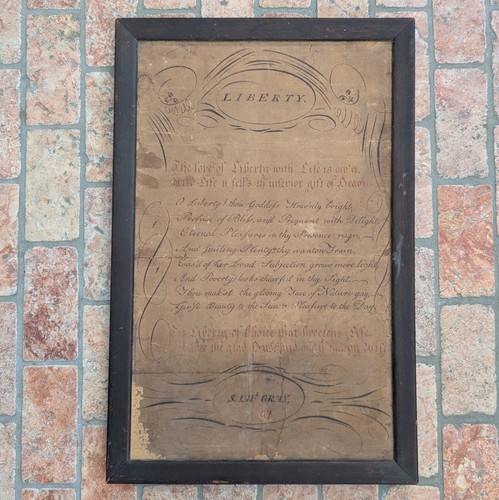 LIBERTY.
The love of Liberty with Life is giv'n,
And Life it self's th' inferior gift of Heav'n
O Liberty! thou Goddess Heav'nly bright,
Profuse of Bliss, and Pregnant with Delight
Eternal Pleasures in thy Presence reign,
And smiling Plenty thy wanton Train.
Eas'd of her Load Subjection grows more light,
And Poverty looks chearful in thy Sight.
Thou mak'st the gloomy Face of Nature gay,
Giv'st Beauty to the Sun & Pleasure to the Day.
Liberty of Choice that
the glad Husband
SAMl. GRAY,